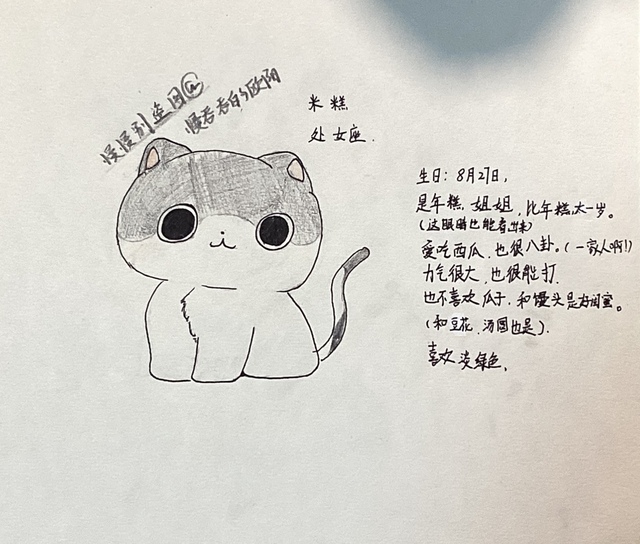 慢慢别盗图@
慢吞吞的欧阳
米糕
处女座.
生日：8月27日,
是年糕姐姐，比年糕大一岁。
(这眼睛也能看出来)
爱吃西瓜，也很八卦。(一家人啊!)
力气很大，也很能打.
也不喜欢瓜子，和馒头是好闺蜜。
(和豆花，汤圆也是).
喜欢淡绿色,